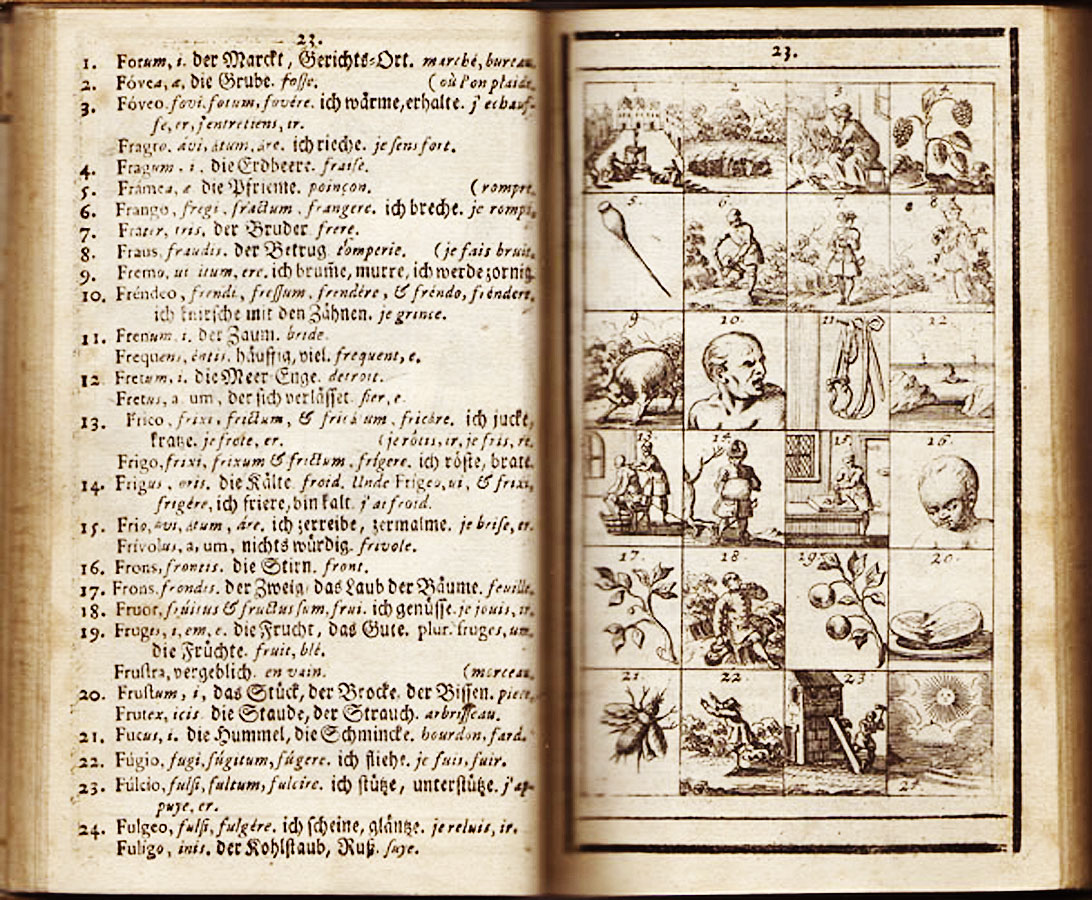 23.
1. Forum, i. der Marckt, Gerichts-Ort. marché, bureau
2. Fóvea, æ, die Grube. fosse. (où l'on plaide.
3. Fóveo, fovi, fotum, fovére. ich wärme, erhalte. j'echauf-
fe, er, j'entretiens, ir.
Fragro, ávi, átum, áre. ich rieche. je sens fort.
4. Fragum, i. die Erdbeere. fraise.
5. Frámea, æ die Pfrieme. poinçon. (rompre.
6. Frango, fregi, fractum, frangere. ich breche. je romps,
7. Frater, tris, der Bruder frere.
8. Fraus, fraudis. der Betrug tromperie. (je fais bruit.
9. Fremo, ui itum, ere. ich brum̃e, murre, ich werde zornig
10. Fréndeo, frendi, fressum, frendére, & fréndo, fréndere,
ich knirsche mit den Zähnen. je grince.
11. Frenum, i. der Zaum. bride.
Frequens, éntis. häuffig, viel. frequent, e.
12 Fretum, i. die Meer-Enge. detroit.
Fretus, a um, der sich verlässet. fier, e
13. Frico, frixi, frictum, & fricátum, fricáre. ich jucke,
kratze. je frote, er. (je rôtis, ir, je fris, re.
Frigo, frixi, frixum & frictum, frígere. ich röste, brate.
14. Frigus, oris. die Kälte froid. Unde Frigeo, ui, & frixi,
frigére, ich friere, bin kalt. j'ai froid.
15. Frio, ávi, átum, áre. ich zerreibe, zermalme. je brise, er.
Frívolus, a, um, nichts würdig. frivole.
16. Frons, frontis. die Stirn. front.
17. Frons, frondis. der Zweig, das Laub der Bäume. feuille.
18. Fruor, frúitus & fructus sum, frui. ich genüsse. je jouis, ir.
19. Frugis, i, em, e. die Frucht, das Gute. plur. fruges, um,
die Früchte. fruit, blé.
Frustra, vergeblich. en vain. (morceau.
20. Frustum, i, das Stück, der Brocke. der Bissen. piece,
Frutex, icis die Staude, der Strauch. arbrisseau.
21. Fucus, i. die Hummel, die Schmincke. bourdon, fard.
22. Fúgio, fugi, fúgitum, fúgere. ich fliehe. je fuis, fuir.
23. Fúlcio, fulsi, fultum, fulcire. ich stütze, unterstütze. j'ap-
puye, er.
24. Fulgeo, fulsi, fulgére. ich scheine, gläntze. je reluis, ir.
Fuligo, inis. der Kohlstaub, Ruß. suye.
23.
1 2 3 4
5. 6. 7 8 8
9 10. 11 12
13 14. 15. 16.
17. 18. 19. 20.
21. 22. 23